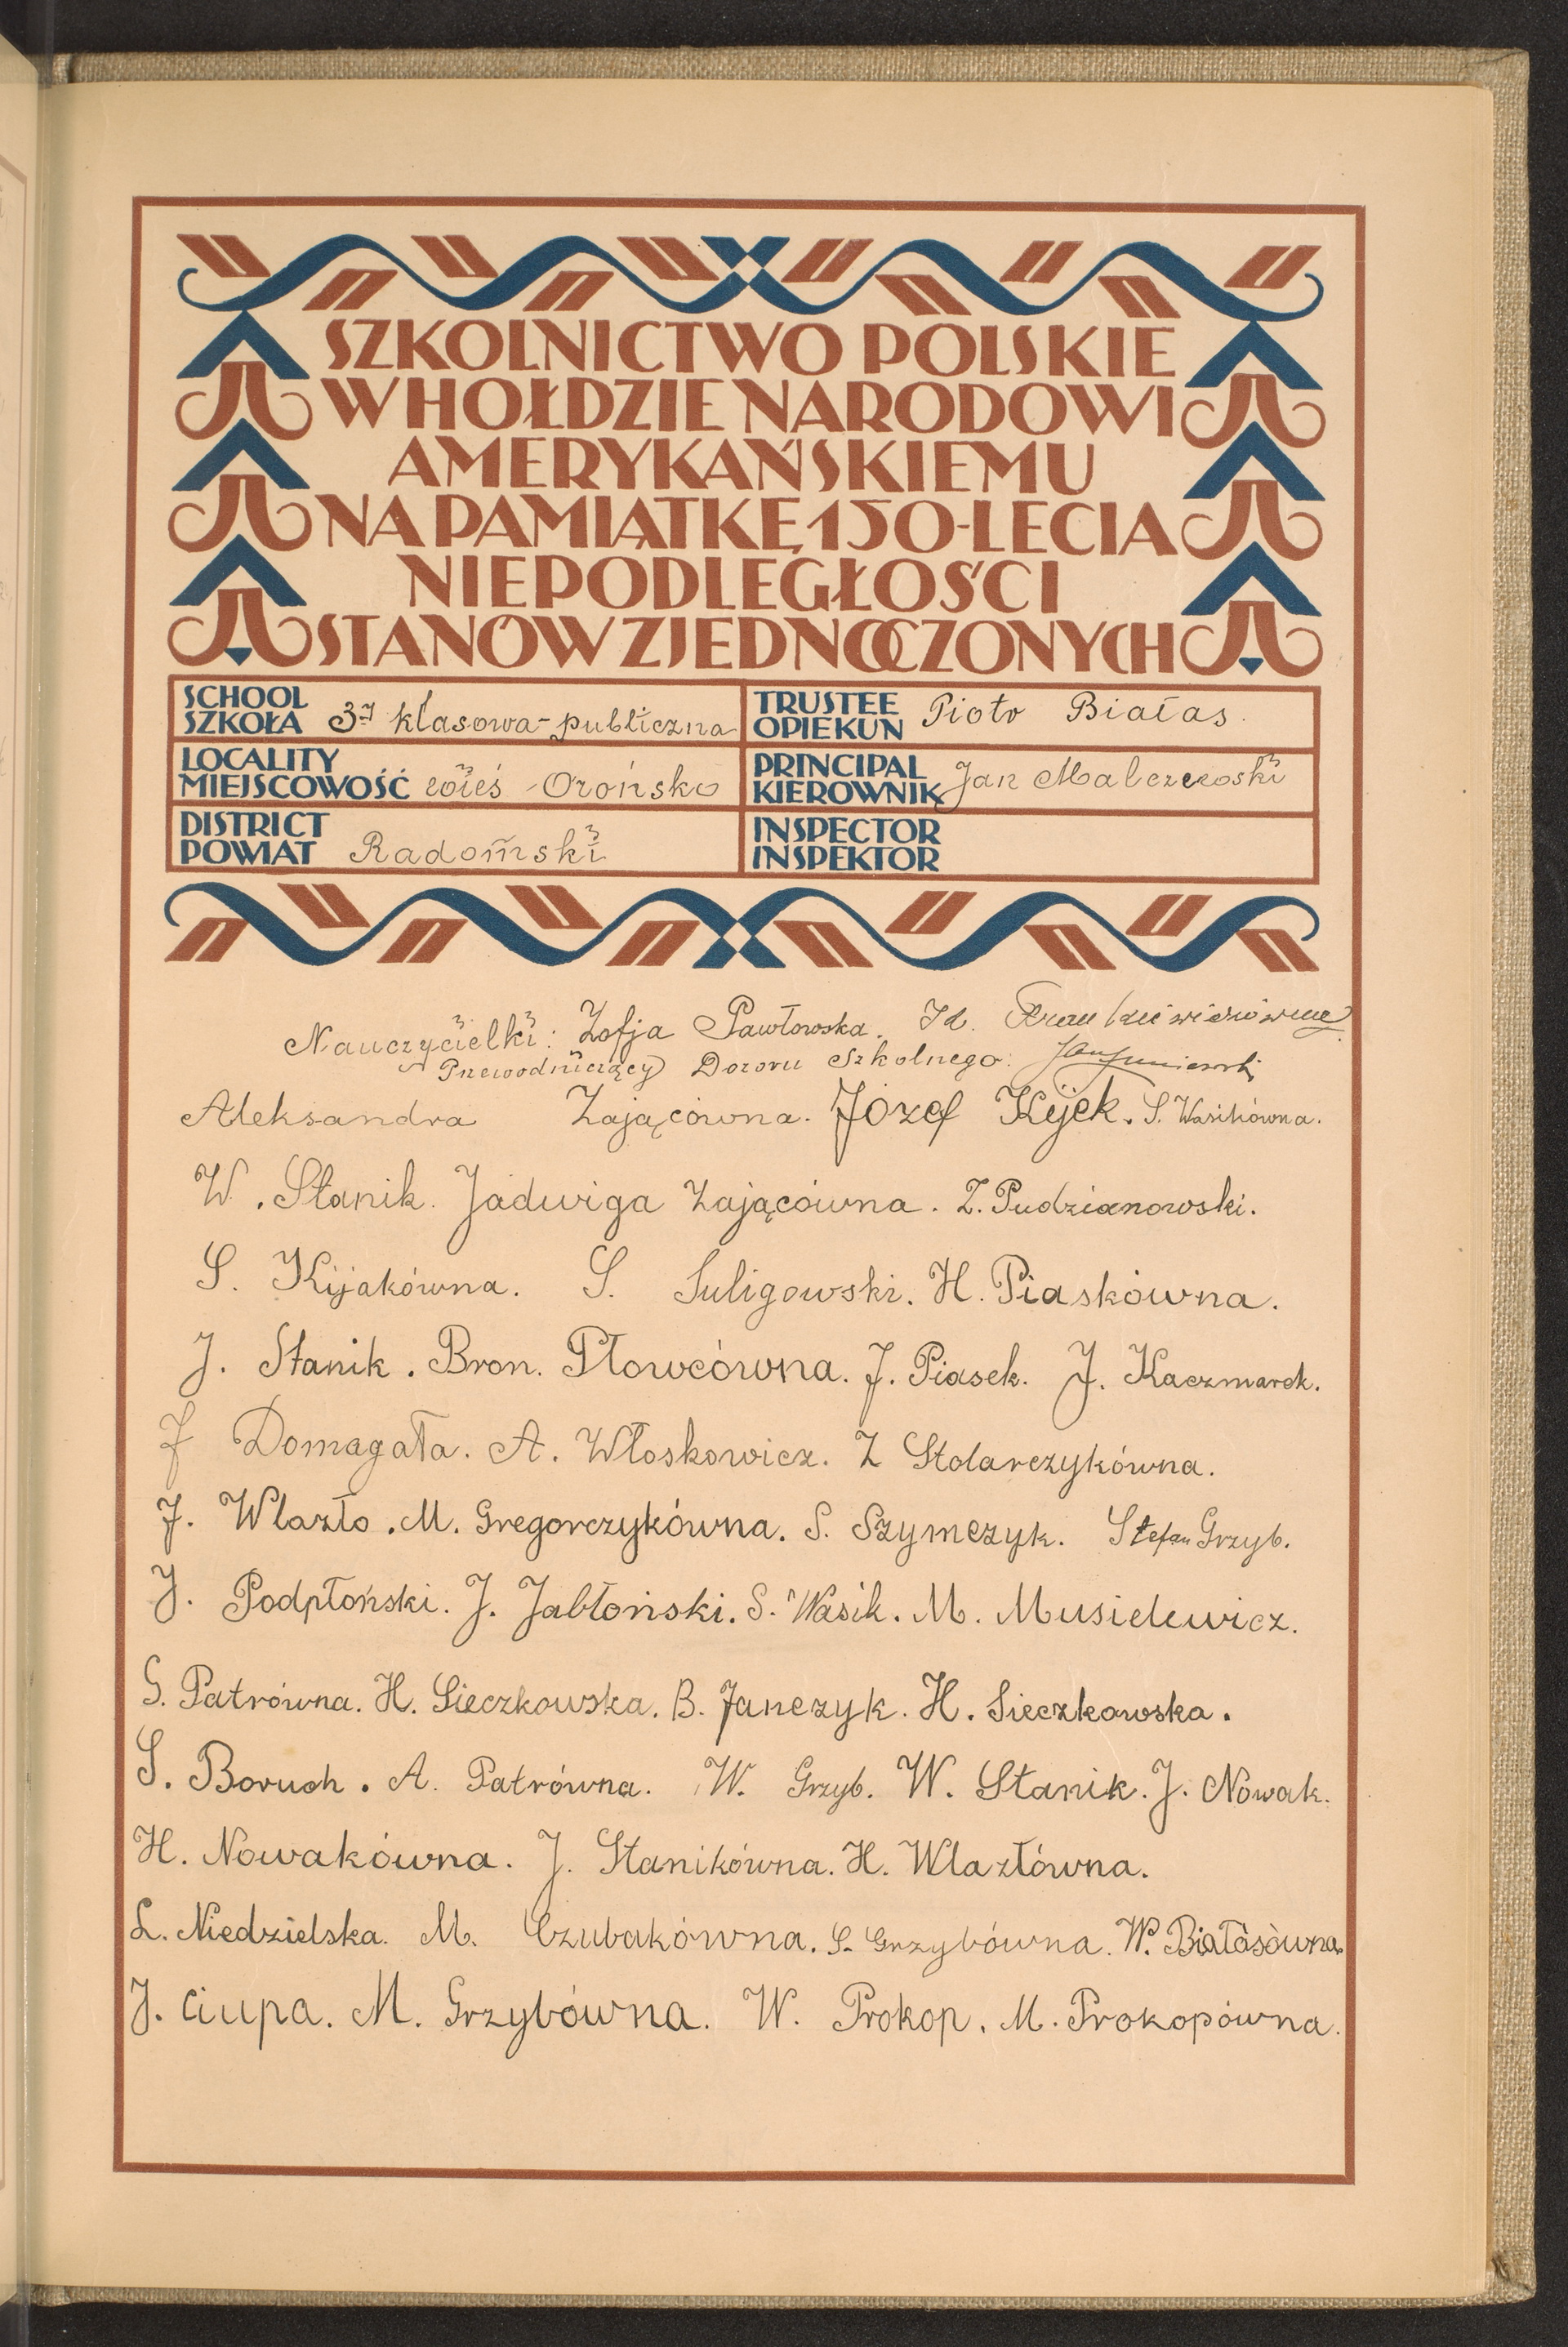 SZKOLNICTWO POLSKIE
W HOŁDZIE NARODOWI
AMERYKAŃSKIEMU
NA PAMIĄTKĘ 150-LECIA
NIEPODLEGŁOŚCI
STANÓW ZJEDNOCZONYCH
SCHOOL
SZKOŁA 3-j klasowa-publiczna
TRUSTEE
OPIEKUN Piotr Białas.
LOCALITY
MIEJSCOWOŚĆ wieś Orońsko
PRINCIPAL
KIEROWNIK Jan Malczewski
DISTRICT
POWIAT Radomski
INSPECTOR
INSPEKTOR
Nauczycielki: Zofja Pawłowska.
Przewodniczący Dozoru Szkolnego:
Aleksandra Zającówna. Józef Kijek. S. Wasikówna.
W. Stanik. Jadwiga Zającówna. Z. Pudzianowski.
S. Kijakówna. S. Suligowski. H. Piaskówna.
J. Stanik. Bron. Płowcówna. J. Piasek. J. Kaczmarek.
J Domagała. A. Włoskowicz. Z Stolarczykówna.
J. Wlazło. M. Gregorczykówna. S. Szymczyk. Stefan Grzyb.
J. Podpłoński. J. Jabłoński. S. Wasik. M. Musielewicz.
G. Patrówna. H. Sieczkowska. B. Janczyk. H. Sieczkowska.
S. Boruch. A. Patrówna. W. Grzyb. W. Stanik. J. Nowak.
H. Nowakówna. J. Stanikówna. H. Wlazłówna.
L. Niedzielska. M. Czubakówna. S. Grzybówna. W. Białasówna.
J. Ciupa. M. Grzybówna. W. Prokop. M. Prokopówna.